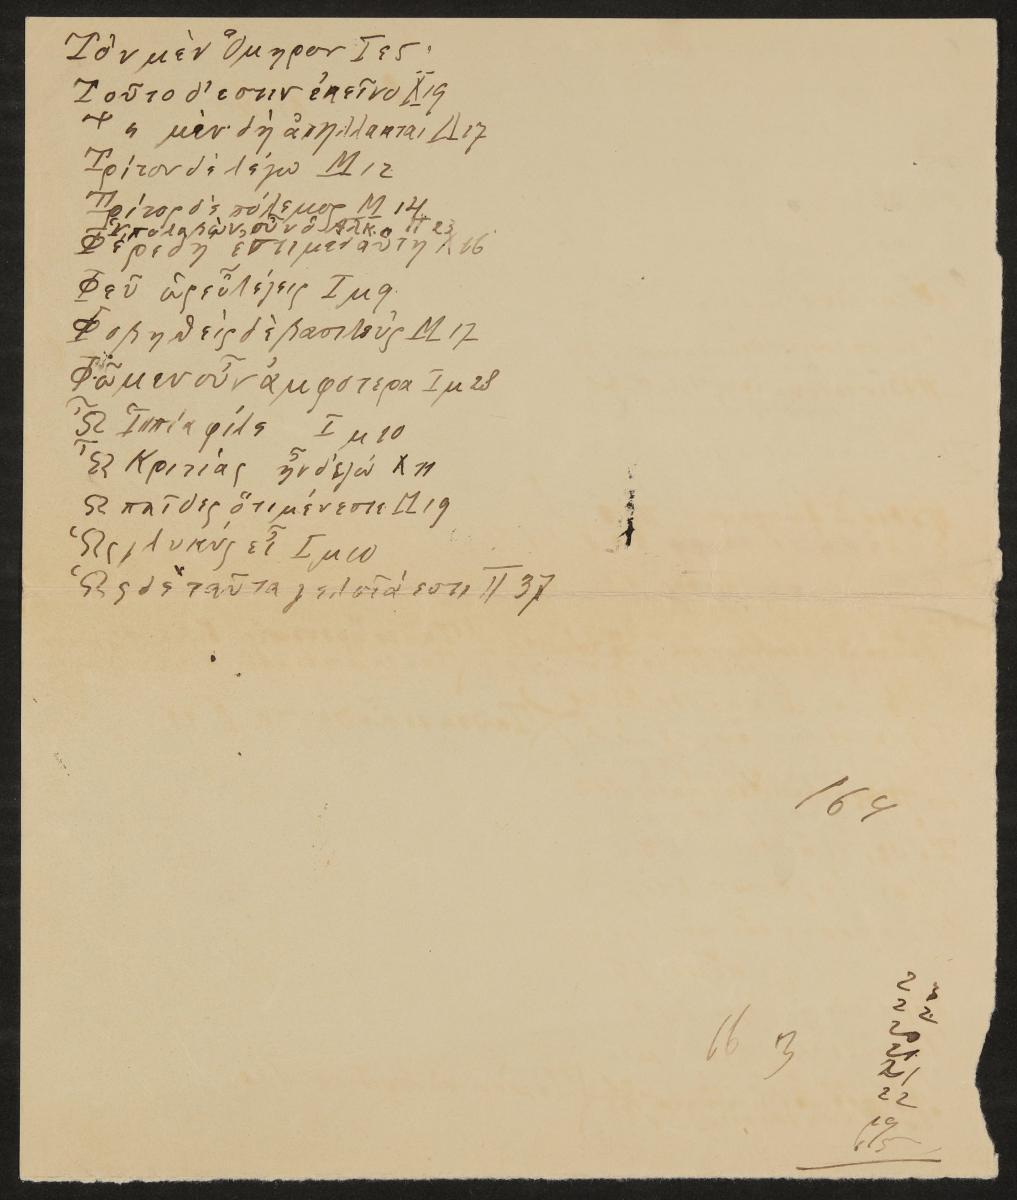 Τὸν μὲν Ὅμηρον Ι ες
Τοῦτο δ' εστιν ἐκεῖνο Χ 19
μὲν δὴ Π 17
Τρίτον δὲ λέγω Μ 12
Τρίτος δὲ πόλεμος Μ 14
Π 23
Φέρε δὴ Χ 16
Φεῦ ὡς εὖ λέγεις Ι μ 9
Φοβηθεὶς δὲ βασιλεὺς Μ 17
Φῶμεν οὖν ἀμφοτερα Ι μ 28
Ὦ Ἱππία φίλε Ι μ 10
Ὦ Κριτίας ἦν δ'εγώ Χ 11
Ω παῖδες ὅτι μέν εστι Π 19
Ὡς γλυκὺς εἶ Ι μ 10
Ὡς δὲ ταῦτα γελοῖά εστι Π 37
164
2 3
2 2
2
2 1
22
19
66 3